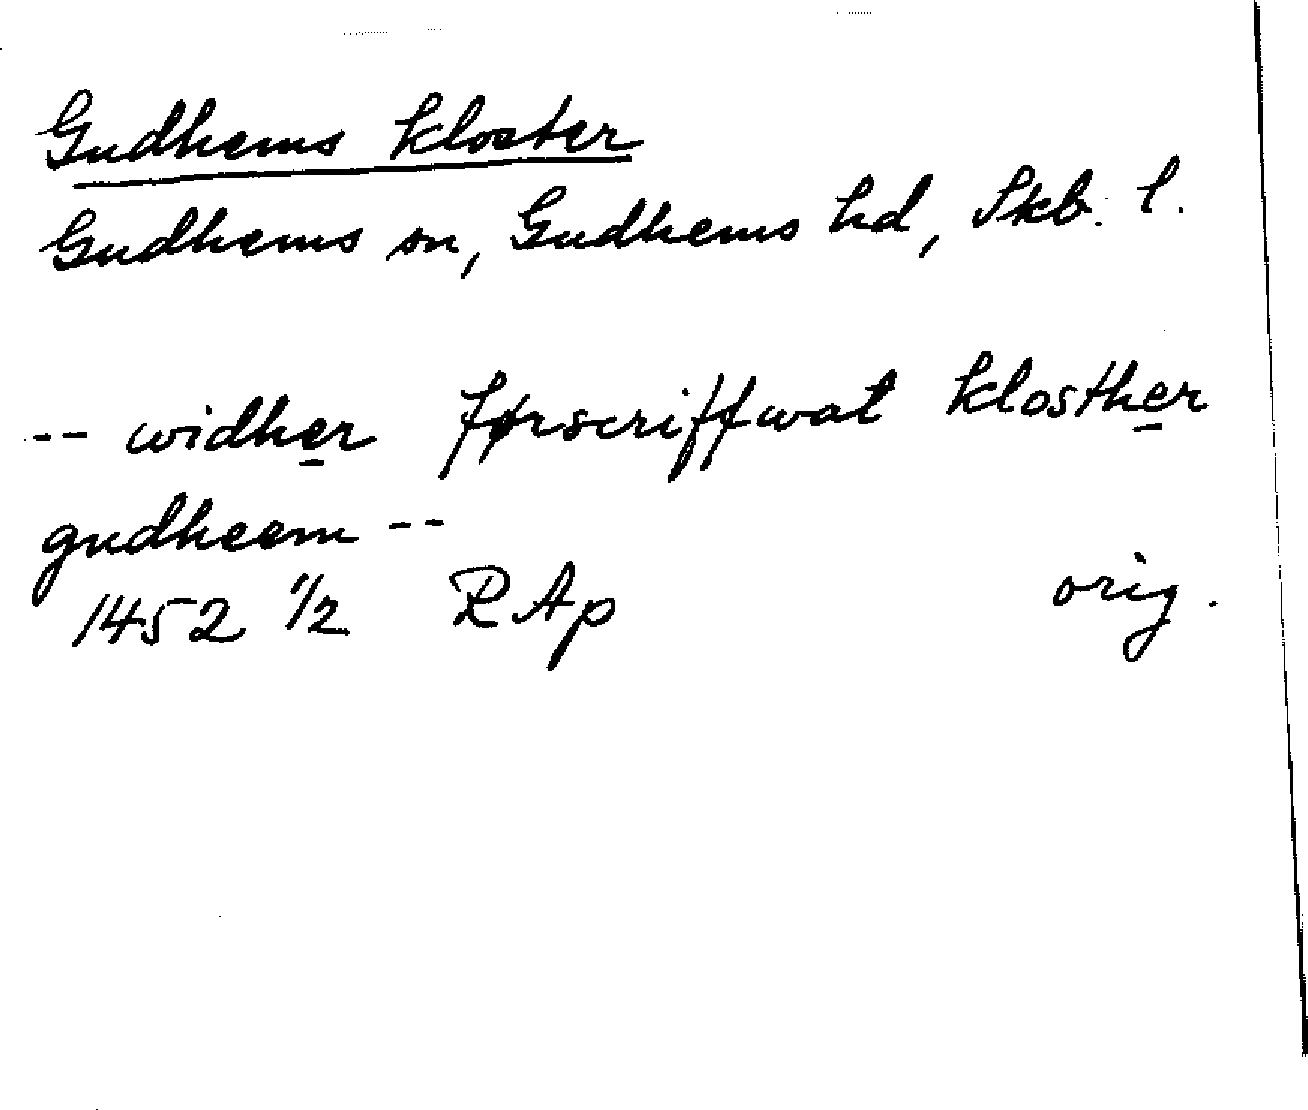 Gudhems kloster
Gudhems sn, Gudhems hd, Skb. l.
-- widher førscriffwat klosther
gudheem --
1452 1/2 RAp orig.